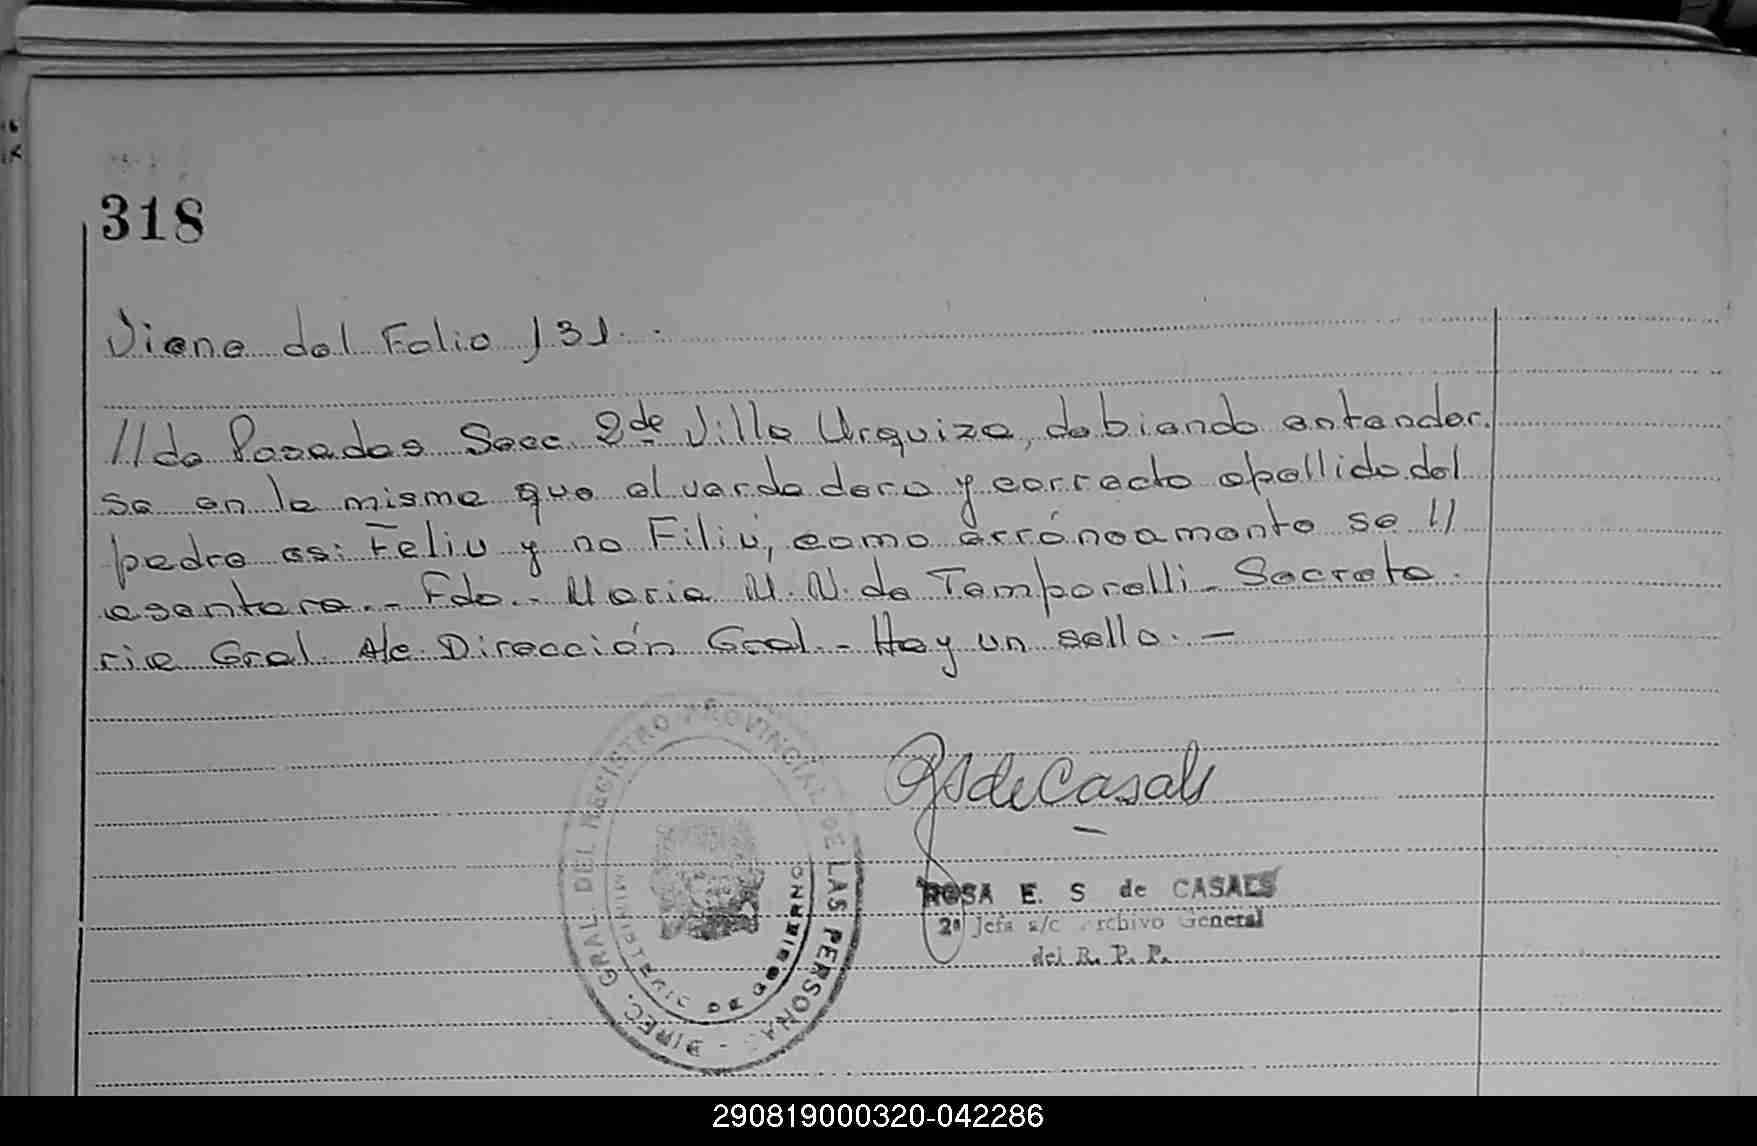 318
Viene del Folio 131.-
//de Posadas Secc. 2da Villa Urquiza, debiendo entender.
se en la misma que el verdadero y correcto apellido del
padre es: Feliu y no Filiú, como erróneamente se //
asentara.- Fdo.- Maria M. N. de Temporelli - Secreta.
ria Gral. A/c. Dirección Gral.- Hay un sello.-
DIREC. GRAL. DEL REGISTRO PROVINCIAL DE LAS PERSONAS -
MINISTERIO DE GOBIERNO
RSdeCasals
ROSA E. S de CASALS
2ª Jefa a/c Archivo General
del R. P. P.
290819000320-042286